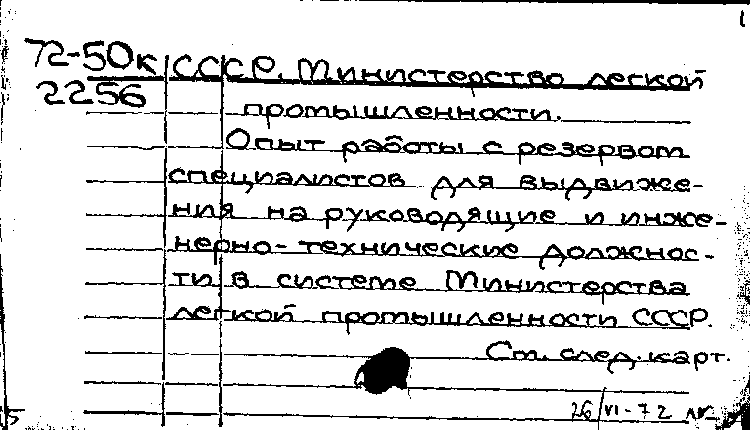 1
72-50к СССР. Министерство легкой
2256 промышленности.
Опыт работы с резервом
специалистов для выдвиже-
ния на руководящие и инже-
нерно-технические должнос-
ти в системе Министерства
легкой промышленности СССР.
См. след. карт.
26/VI-72
5